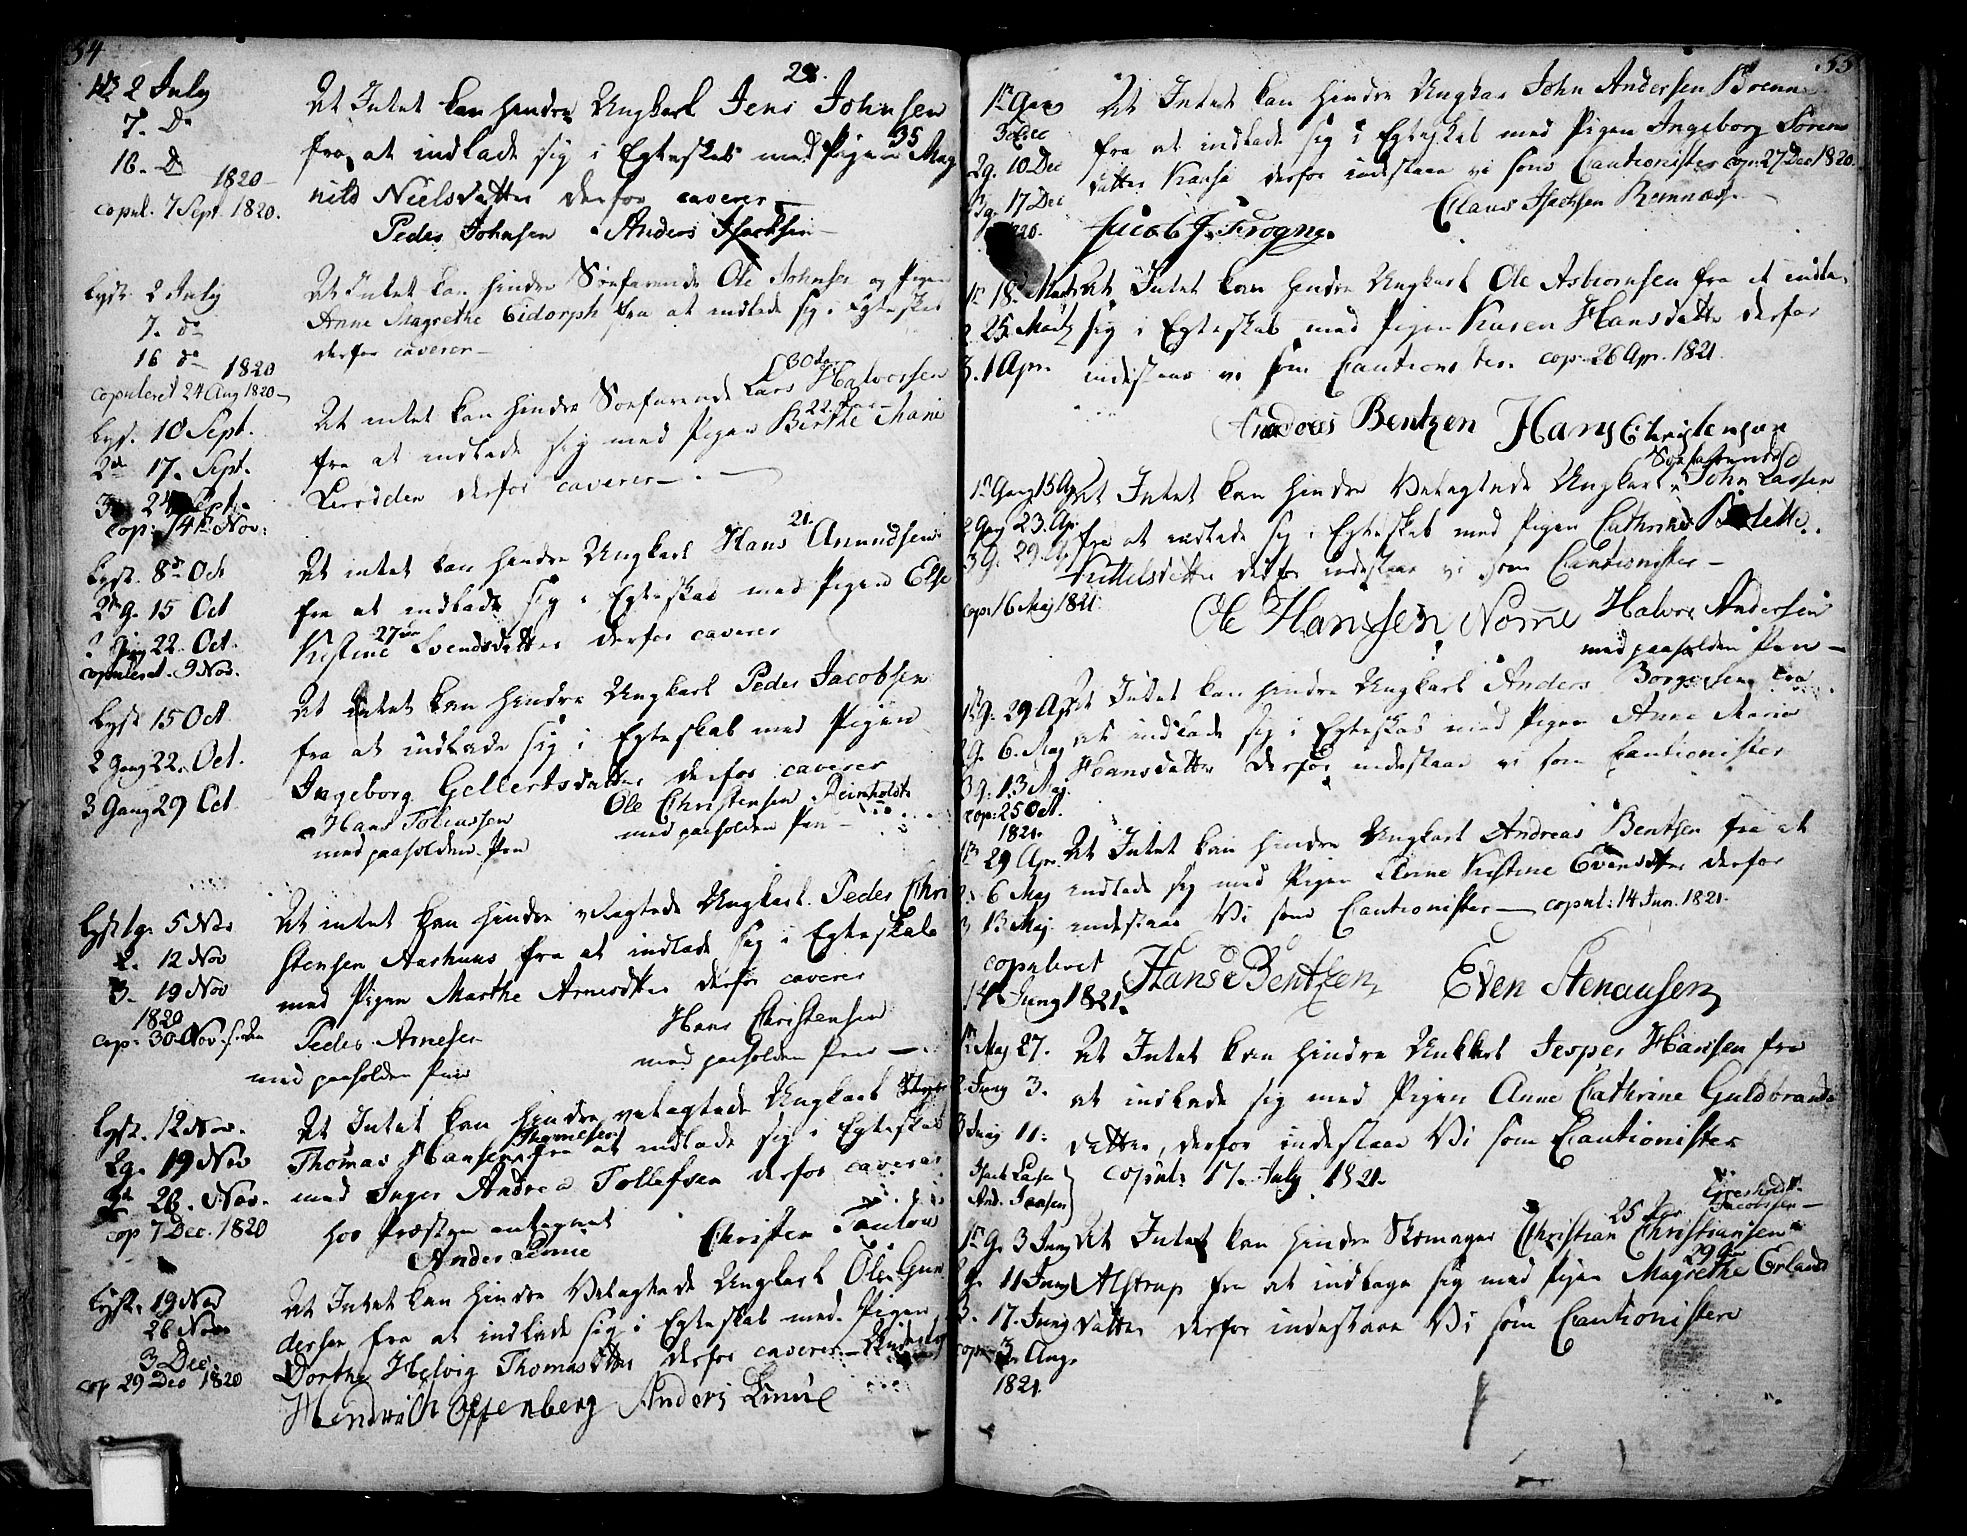 54
2 July
7. Do
16. D
1820
copul. 7 Sept 1820.
28.
At Intet kan hindre Ungkarl Jens Johnsen
35
fra at indlade sig i Egteskab med Pigen Mag
nild Nielsdatter derfor caverer
Peder Johnsen Anders Isachsen
Lyst. 2 July
7. do
16 do
1820
copuleret 24 Aug 1820
At Intet kan hindre Søefarende Ole Johnsen og Pigen
Anne Magrethe Eidorph fra at indlade sig i Egteskab
derfor caverer
Lys. 10 Sept.
2de 17. Sept.
3 24 Sept.
cop: 14de Nov:
30 Aar
At intet kan hindre Søefarende Lars Halvorsen
22 Aar
fra at indlade sig med Pigen Birthe Marie
derfor caverer
Lyst. 8de Oct
2den G. 15 Oct
Gang 22. Oct.
copuleret. 9 Nov.
21.
At intet kan hindre Ungkarl Hans Amundsen
fra at indlade sig i Egteskab med Pigen Else
27
Kistine Svendsdatter derfor caverer
Lyst 15 Oct
2 Gang 22. Oct.
3 Gang 29 Oct
At intet kan hindre Ungkarl Peder Jacobsen
fra at indlade sig i Egteskab med Pigen
Ingeborg Gellertsdatter derfor caverer
Hans Tobiassen Ole Christensen Reinholdt
med paaholden Pen med paaholden Pen
Lyst 1 g. 5 Nov
2. 12 Nov
3. 19 Nov
1820
cop: 30 Nov.
At intet kan hindre velagtede Ungkarl Peder Chri
stensen Aarhuus fra at indlade sig i Egteskab
med Pigen Marthe Arnesdtter derfor caverer
Peder Arnesen Hans Christensen
med paaholden Pen med paaholden Pen
Lyst. 12 Nov.
2 g. 19 Nov
26. Nov.
cop 7 Dec. 1820
At Intet kan hindre velagtede Ungkarl
Thomesen
Thomas Hansen fra at indlade sig i Egteskab
med Inger Andrea Tollefsen derfor caverer
hos Præsten antegnet Christen
Anders
Lyst. 19 Nov
26 Nov
3 Dec.
cop 29 Dec 1820
At Intet kan hindre Velagtede Ungkarl Ole Gun
dersen fra at indlade sig i Egteskab med Pigen
Dorthe Helvig Thomasdtter derfor caverer
Hendrich Offenberg Anders Knus
55
1ste Gang
3 Dec
2 g. 10 Dec
3 g. 17 Dec
1820.
At Intet kan hindre Ungkar John Andersen
fra at indlade sig i Egteskab med Pigen Ingeborg Søren
datter derfor indestaar vi som Cautionister cop: 27 Dec 1820.
Claus Isachsen
Jacob J. Frogner
18. Marts
2. 25. Marts
3. 1 Apr.
At Intet kan hindre Ungkarl Ole Asbiørnsen fra at indla
sig i Egteskab med Pigen Karen Hansdatter derfor
indestaar vi som Cautionister. cop: 26 Apr. 1821
Andreas Bentzen Hans Christensen
1ste Gang 15 Ap
2 Gang 23. Ap.
3 G. 29. Ap
cop: 16 Maj 1821.
Søefarende
At Intet kan hindre Velagtede Ungkarl John Larsen
fra at indlade sig i Egteskab med Pigen Cathrine
Kittelsdatter derfor indestaar vi som Cautionister
Ole Hansen Nome Halvor Andersen
med paaholden Pen
1ste G. 29 Ap
2 G. 6. Maj
3 g. 13 Maj
cop: 25 Oct.
1821.
At Intet kan hindre Ungkarl Anders Borgersen fra
at indlade sig i Egteskab med Pigen Anne Marie
Hansdatter derfor indestaar vi som Cautionister
29 Apr.
2. 6 Maj
3 13 Maj
copuleret
14de Juny 1821.
At Intet kan hindre Ungkarl Andreas Bentsen fra at
indlade sig med Pigen Kistine Evensdtter derfor
indestaar Vi som Cautionister copul: 14 Jun. 1821.
Hans Bentzen Even Stenausen
Maj 27.
2 Juny 3.
3 Juny 11.
Isach Larsen
And. Jansen
At Intet kan hindre Unkkarl Jesper Hansen fra
at indlade sig med Pigen Anne Cathrine Guldbrands
datter, derfor indestaar Vi som Cautionister
copul: 17. July 1821.
Jacobsen
25 Aar
1ste G. 3 Juny
2 g. 11 Juny
3. 17. Juny
cop: 3. Aug.
1821.
At Intet kan hindre Skomager Christian Christiansen
29 Aar
Alstrup fra at indlage sig med Pigen Magrethe Erlands
datter derfor indestaar Vi som Cautionister